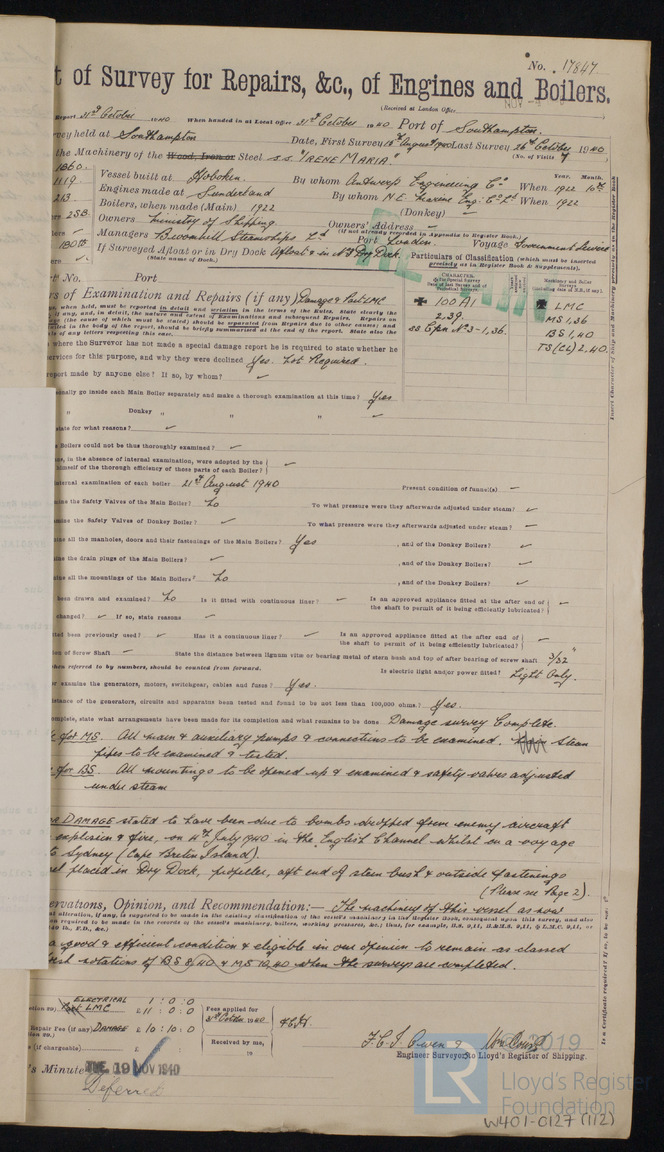 No. 17847
t of Survey for Repairs, &c., of Engines and Boilers.
(Received at London Office
NOV
Report 31st October 1940 When handed in at Local Office 31st October 1940 Port of Southampton.
vey held at Southampton Date, First Survey 15th August 1940 Last Survey 26th October 1940
(No. of Visits 7)
the Machinery of the Wood, Iron or Steel s.s. "IRENE MARIA"
1860. Year. Month.
1119. Vessel built at Hoboken. By whom Antwerp Engineering Co When 1922 10th
213 Engines made at Sunderland By whom N.E. Marine Eng. Co Ld When 1922
Boilers, when made (Main) 1922 (Donkey) —
258. Owners Ministry of Shipping. Owners' Address —
(If not already recorded in Appendix to Register Book.)
Managers Broomhill Steamships Ld. Port London. Voyage Government Service.
180 lb If Surveyed Afloat or in Dry Dock Afloat & in No 7 Dry Dock.
(State name of Dock.)
Particulars of Classification (which must be inserted precisely as in Register Book & Supplements).
rt No. Port
rs of Examination and Repairs (if any) Damage & Part LMC
CHARACTER.
100 A1
2.39.
SS Cpn No 3 - 1.36.
LMC
MS 1,36
BS 1,40
TS(CL) 2.40.
where the Surveyor has not made a special damage report he is required to state whether he
services for this purpose, and why they were declined Yes. Not Required.
report made by anyone else? If so, by whom?
onally go inside each Main Boiler separately and make a thorough examination at this time? Yes
" Donkey " " "
state for what reasons?
Boilers could not be thus thoroughly examined?
ns, in the absence of internal examination, were adopted by the
himself of the thorough efficiency of those parts of each Boiler?
internal examination of each boiler 21st August 1940 Present condition of funnel(s)
ine the Safety Valves of the Main Boiler? No To what pressure were they afterwards adjusted under steam?
ine the Safety Valves of Donkey Boiler? To what pressure were they afterwards adjusted under steam?
ine all the manholes, doors and their fastenings of the Main Boilers? Yes , and of the Donkey Boilers?
ine the drain plugs of the Main Boilers? , and of the Donkey Boilers?
ine all the mountings of the Main Boilers? No , and of the Donkey Boilers?
been drawn and examined? No Is it fitted with continuous liner? Is an approved appliance fitted at the after end of
the shaft to permit of it being efficiently lubricated?
changed? If so, state reasons
ted been previously used? Has it a continuous liner? Is an approved appliance fitted at the after end of
the shaft to permit of it being efficiently lubricated?
on of Screw Shaft State the distance between lignum vitæ or bearing metal of stern bush and top of after bearing of screw shaft 3/32"
hen referred to by numbers, should be counted from forward. Is electric light and/or power fitted? Light Only.
er examine the generators, motors, switchgear, cables and fuses? Yes.
istance of the generators, circuits and apparatus been tested and found to be not less than 100,000 ohms? Yes.
omplete, state what arrangements have been made for its completion and what remains to be done Damage survey Complete.
for MS. All main & auxiliary pumps & connections to be examined. steam
pipes to be examined & tested.
for BS. All mountings to be opened up & examined & safety valves adjusted
under steam
DAMAGE stated to have been due to bombs dropped from enemy aircraft
explosion & fire, on 4th July 1940 in the English Channel whilst on a voyage
to Sydney (Cape Breton Island).
el placed in Dry Dock, propeller, aft end of stern bush & outside fastenings
(Please see Page 2).
ervations, Opinion, and Recommendation:— The machinery of this vessel as now
a good & efficient condition & eligible in our opinion to remain as classed
resh notations of BS 8,40 & MS 10,40 when the surveys are completed.
ELECTRICAL 1 : 0 : 0
LMC £11 : 0 : 0
Repair Fee (if any) DAMAGE £10 : 10 : 0
(if chargeable) £ : :
Fees applied for
31st October 1940
Received by me,
19
F.C.J. Owen &
Engineer Surveyors to Lloyd's Register of Shipping.
's Minute TUE. 19 NOV 1940
Deferred
Insert Character of Ship and Machinery precisely as in the Register Book
Is a Certificate required? If so, to be sent
© 2019
LR
Lloyd's Register
Foundation
W401-0127 (1/2)